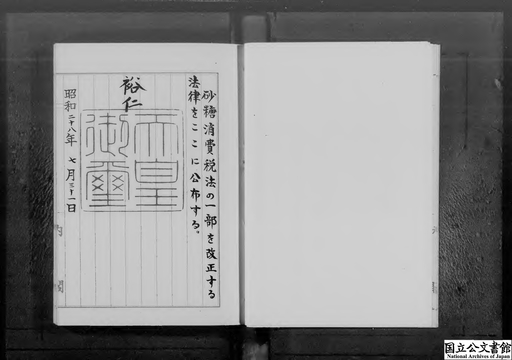 砂糖消費税法の一部を改正する
法律をここに公布する。
裕仁
天皇
御璽
昭和二十八年七月三十一日
内閣
国立公文書館
National Archives of Japan